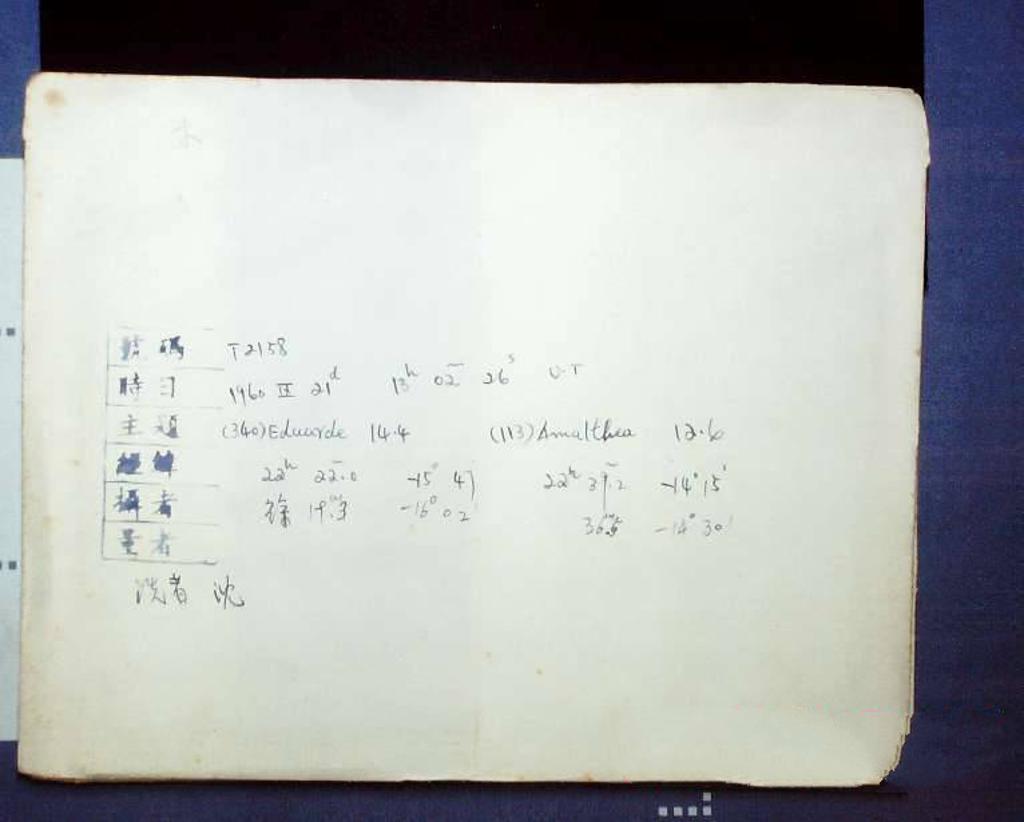 號碼 T2158
時日 1960 II 21d 13h 02m 26s U.T
主題 (340)Eduarda 14.4 (113)Amalthea 12.6
經緯 22h 22m.0 -15° 47' 22h 39m.2 -14° 15'
攝者 徐 19m.3 -16° 02' 36m.5 -14° 30'
量者
洗者 沈